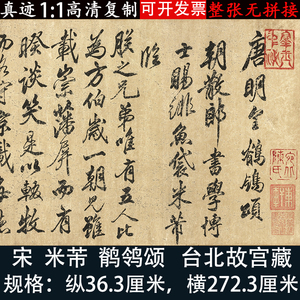 真迹 1:1高清复制 可开发票 整张无拼接
唐明皇鶺鴒頌
朝散郎書學博
士賜緋魚袋米芾
臨
朕之兄弟唯有五人比
為方伯歲一朝見雖
載崇藩屏而有
睽談笑是以輟牧
宋 米芾 鹡鸰颂 台北故宫藏
规格：纵36.3厘米，横272.3厘米